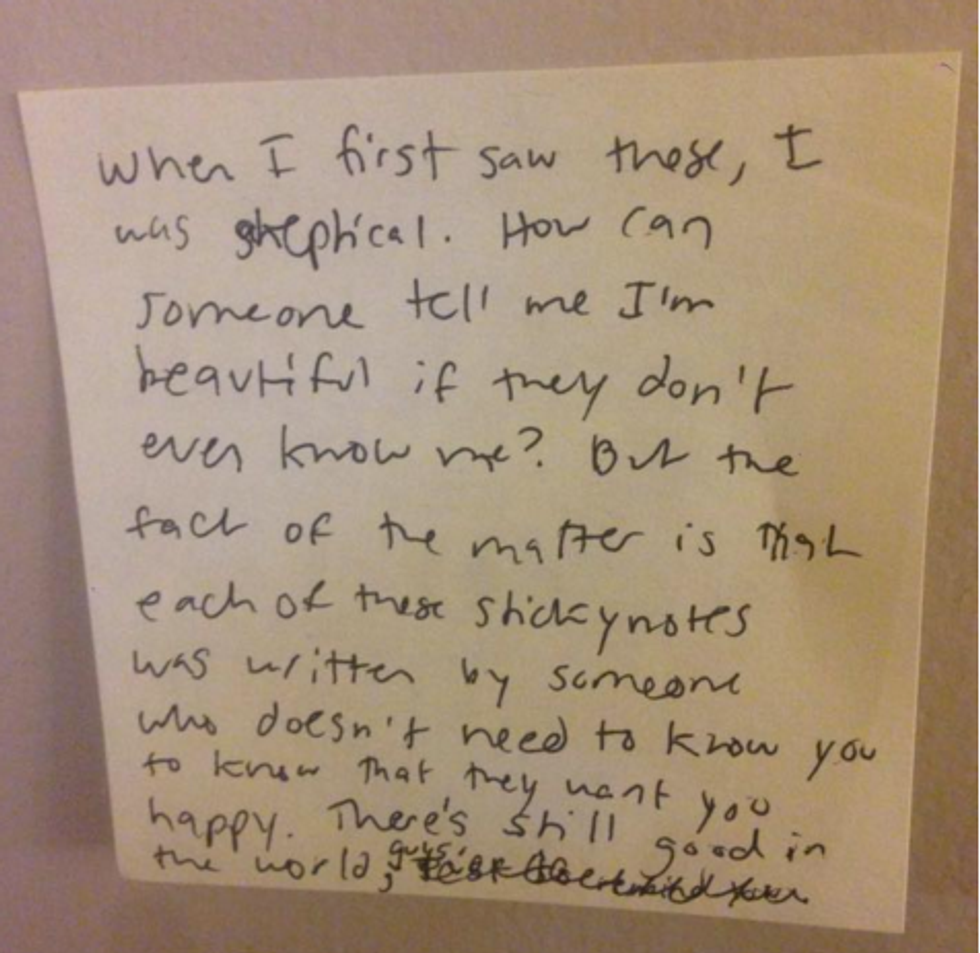 when I first saw these, I
was skeptical. How can
someone tell me I'm
beautiful if they don't
even know me? But the
fact of the matter is that
each of these stickynotes
was written by someone
who doesn't need to know you
to know that they want you
happy. There's still good in
the world, guys.